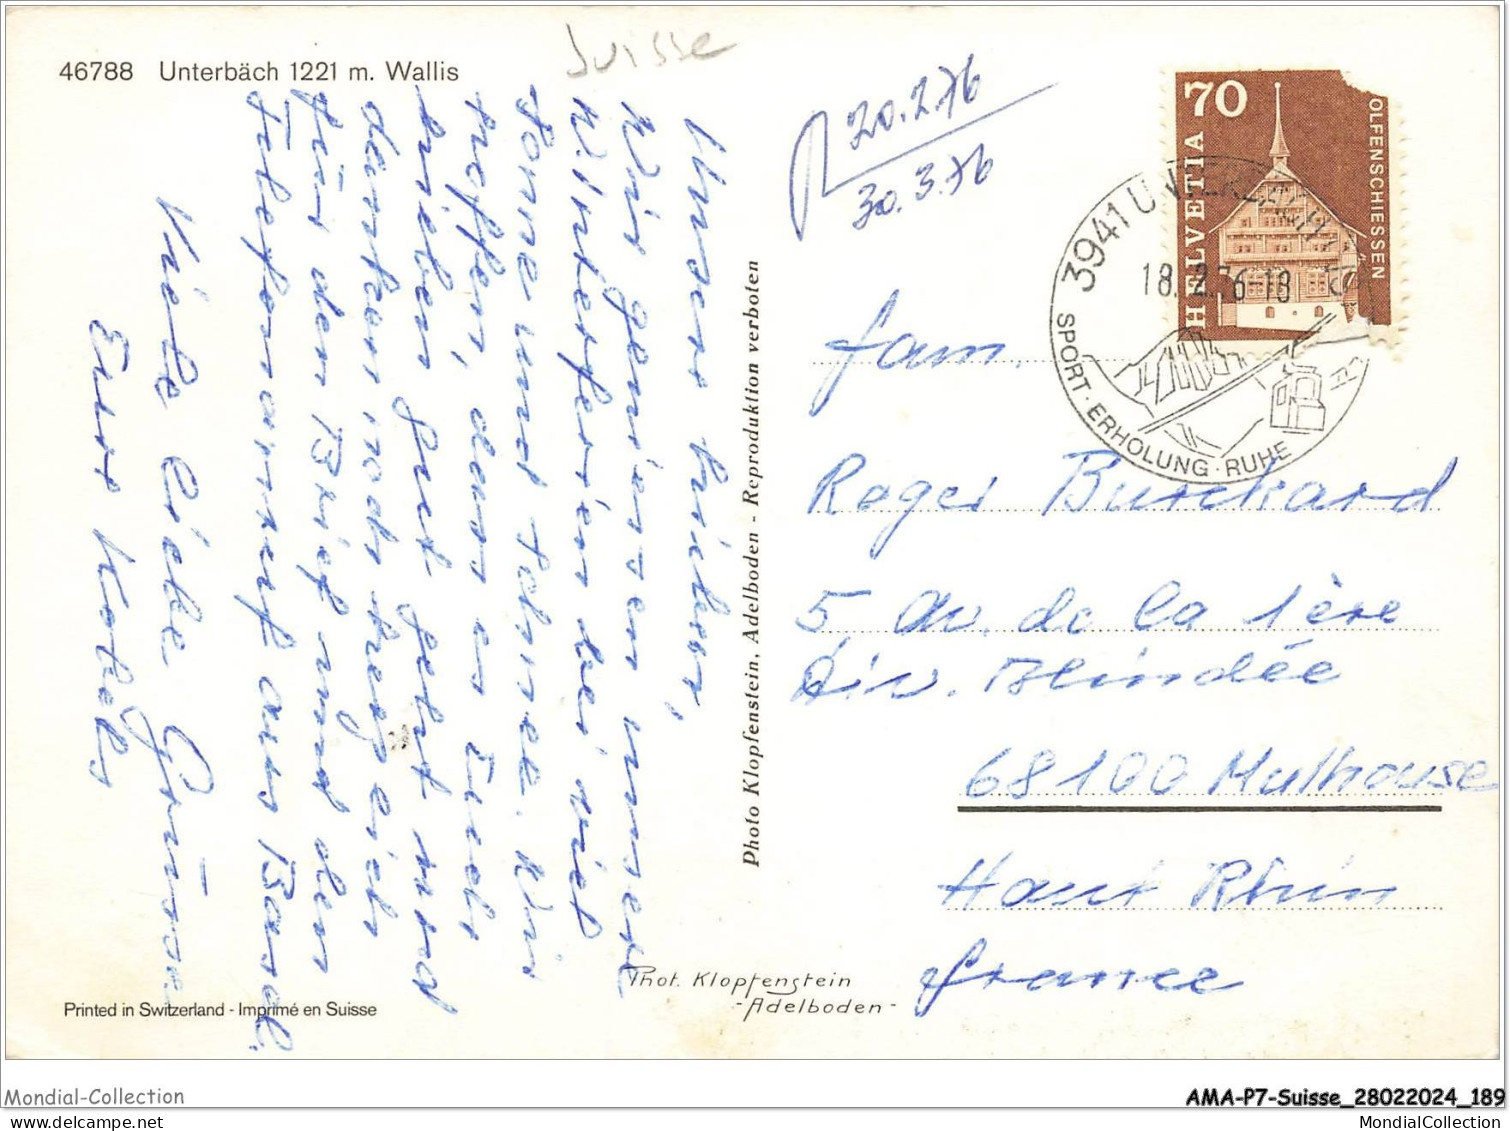 46788 Unterbäch 1221 m. Wallis
Suisse
20.2.76
30.3.76
70
HELVETIA
OLFENSCHIESSEN
3941 UNTERBÄCH
18. 2. 76-18
SPORT · ERHOLUNG · RUHE
Unsere Lieben,
Wir geniessen unsere
Winterferien bei viel
Sonne und Schnee. Wir
hoffen, dass es Euch
beiden gut geht und
danken noch herzlich
für den Brief und den
Telefonanruf aus Basel.
Viele liebe Grüsse
Eure
Photo Klopfenstein, Adelboden - Reproduktion verboten
Fam.
Roger Burckard
5, av. de la 1ère
Div. Blindée
68100 Mulhouse
Haut Rhin
France
Phot. Klopfenstein
- Adelboden -
Printed in Switzerland - Imprimé en Suisse
Mondial-Collection
AMA-P7-Suisse_28022024_189
delcampe.net
MondialCollection